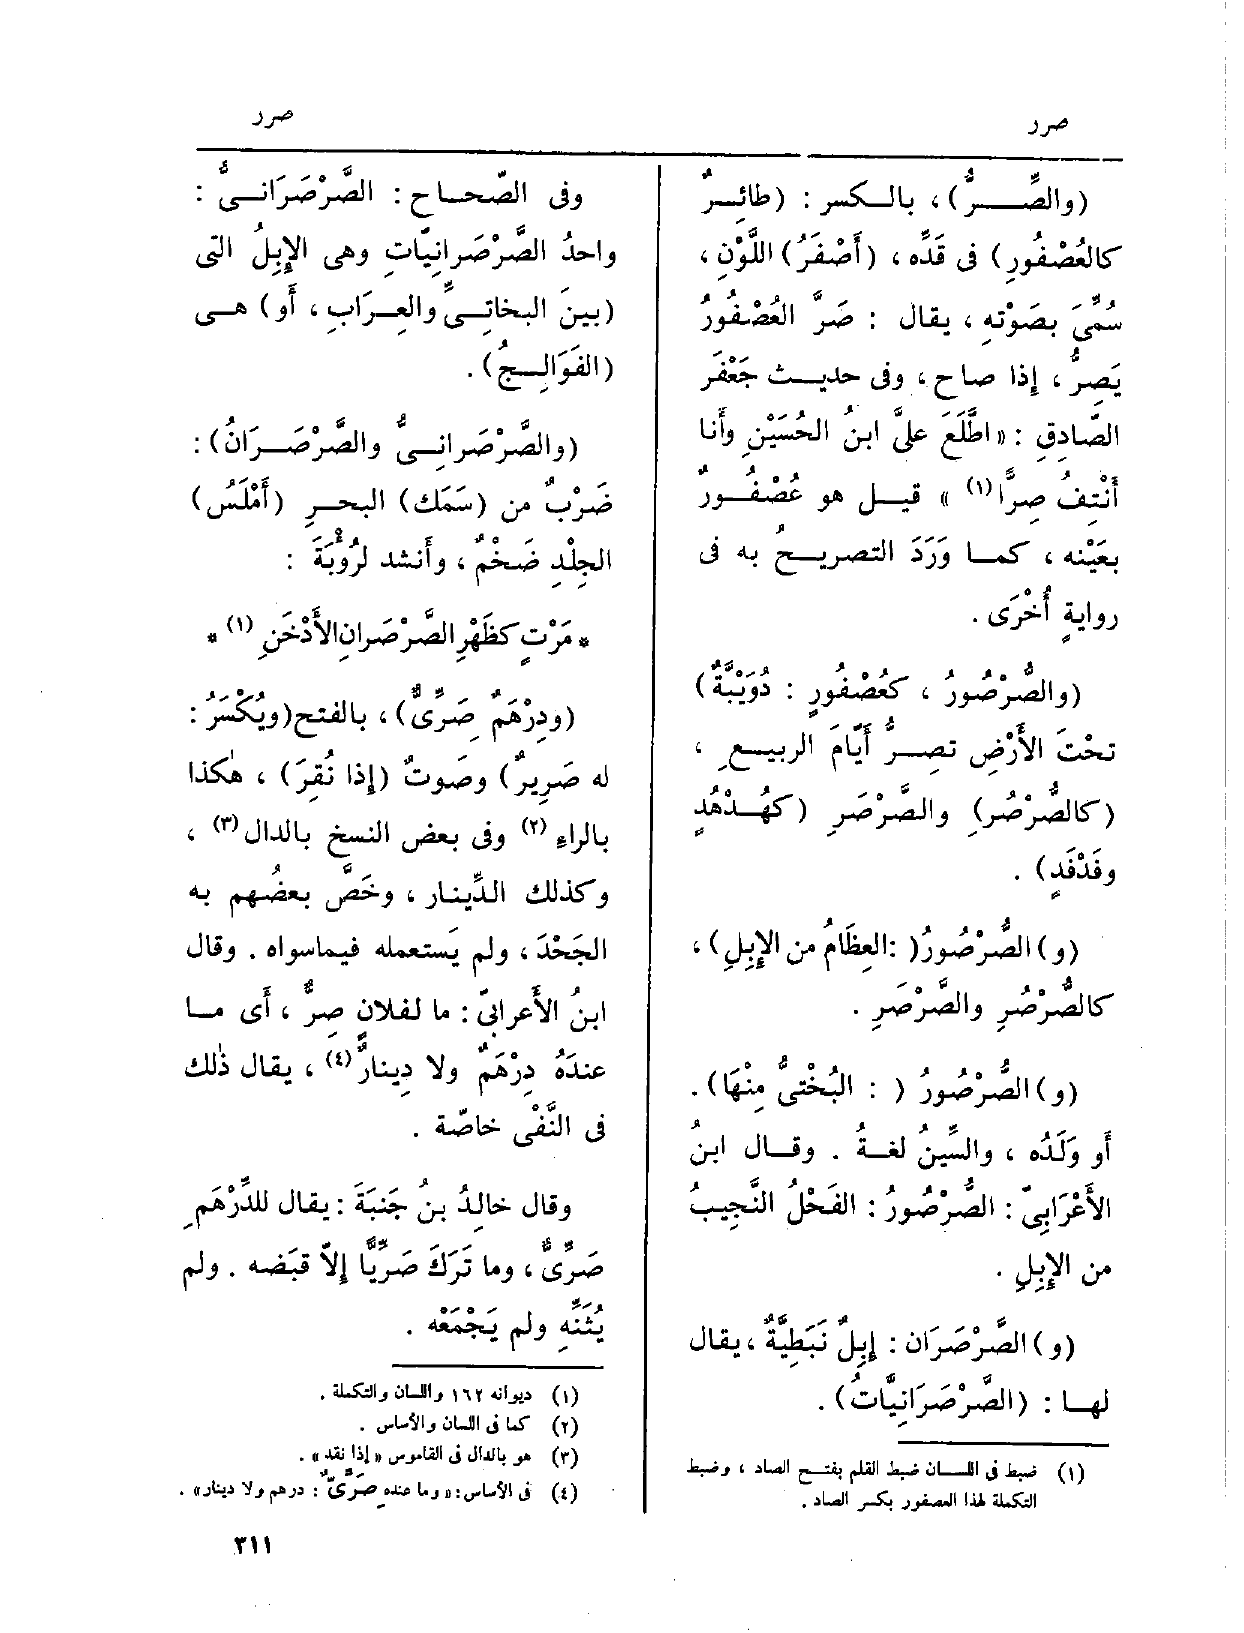 صرر
صرر
(والصِّـــرُّ)، بالـكسر : (طائِــرٌ
كالعُصْفُورِ) فى قَدِّه ، (أَصْفَرُ) اللَّوْنِ ،
سُمِّىَ بصَوْتِه ، يقال : صَرَّ العُصْفُورُ
يَصِرُّ ، إذا صاح ، وفى حديـث جَعْفَرٍ
الصّادِقِ : «اطَّلَعَ علىَّ ابنُ الحُسَيْنِ وأَنا
أَنْتِفُ صِرًّا(١) » قيـل هو عُصْفُـورٌ
بعَيْنِه ، كمـا وَرَدَ التصريـحُ به فى
روايةٍ أُخْرَى .
(والصُّرْصُورُ ، كعُصْفُورٍ : دُوَيْبَّةٌ)
تحْتَ الأَرْضِ تصِـرُّ أَيّامَ الربيـعِ ،
(كالصُّرْصُرِ) والصَّرْصَرِ (كهُـدْهُدٍ
وفَدْفَدٍ) .
(و) الصُّرْصُورُ( :العِظَامُ من الإِبِلِ) ،
كالصُّرْصُرِ والصَّرْصَرِ .
(و) الصُّرْصُورُ ( : البُخْتِىُّ مِنْهَا) .
أو وَلَدُه ، والسِّينُ لغــةٌ . وقــال ابنُ
الأَعْرَابِىّ : الصُّرْصُورُ : الفَحْلُ النَّجِيبُ
من الإِبِلِ .
(و) الصَّرْصَرَان : إِبِلٌ نَبَطِيَّةٌ ، يقال
لهـا : (الصَّرْصَرَانِيَّاتُ) .
(١) ضبط فى اللـسان ضبط القلم بفتـح الصاد ، وضبط
التكملة لهذا العصفور بكسر الصاد .
وفى الصّحـاح : الصَّرْصَرَانـىُّ :
واحدُ الصَّرْصَرانِيّاتِ وهى الإِبِلُ التى
(بينَ البخاتِـىِّ والعِـرَابِ ، أَو) هـى
(الفَوَالِـجُ) .
(والصَّرْصَرانِـىُّ والصَّرْصَـرَانُ) :
ضَرْبٌ من (سَمَك) البحـرِ (أَمْلَسُ)
الجِلْدِ ضَخْمٌ ، وأَنشد لرُؤْبَةَ :
* مَرْتٍ كظَهْرِ الصَّرْصَرانِ الأَدْخَنِ (١) *
(ودِرْهَمٌ صَرِّىٌّ) ، بالفتح (ويُكْسَرُ :
له صَرِيرٌ) وصَوتٌ (إذا نُقِرَ) ، هٰكذا
بالراءِ (٢) وفى بعض النسخ بالدال (٣) ،
وكذلك الدِّينـار ، وخَصَّ بعضُهم به
الجَحْدَ ، ولم يَستعمله فيماسواه . وقال
ابنُ الأَعرابىّ : ما لفلان صِرٌّ ، أَى مــا
عندَهُ دِرْهَمٌ ولا دِينارٌ (٤) ، يقال ذٰلك
فى النَّفْىِ خاصّة .
وقال خالِدُ بنُ جَنبَةَ : يقال للدِّرْهَمِ
صَرِّىٌّ ، وما تَرَكَ صَرِّيًّا إلاّ قبَضه . ولم
يُثَنِّهِ ولم يَجْمَعْه .
(١) ديوانه ١٦٢ واللسان والتكملة .
(٢) كما فى اللسان والأساس .
(٣) هو بالدال فى القاموس «إذا نقد» .
(٤) فى الأساس : «وما عنده صَرِّىٌّ : درهم ولا دينار» .
٣١١